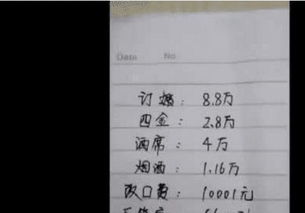 Date No.
订婚：8.8万
四金：2.8万
酒席：4万
烟酒：1.16万
改口费：10001元